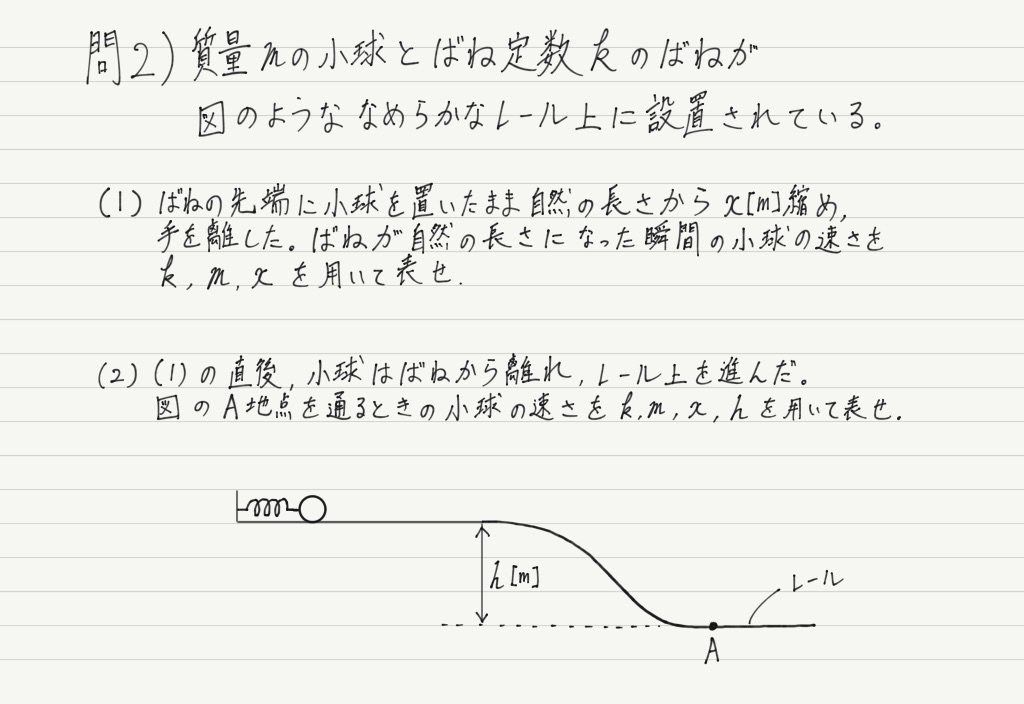 問2) 質量mの小球とばね定数kのばねが
図のようななめらかなレール上に設置されている。
(1) ばねの先端に小球を置いたまま自然の長さからx[m]縮め,
手を離した。ばねが自然の長さになった瞬間の小球の速さを
k, m, x を用いて表せ.
(2) (1)の直後, 小球はばねから離れ, レール上を進んだ。
図のA地点を通るときの小球の速さをk, m, x, hを用いて表せ.
h[m]
レール
A